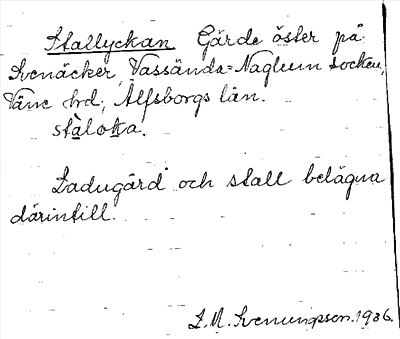 Stallyckan Gärde öster på
Svenäcker, Vassända-Naglum socken,
Väne hd, Älfsborgs län.
stàloka.
Ladugård och stall belägna
därintill.
L.M. Svenungsson. 1936.